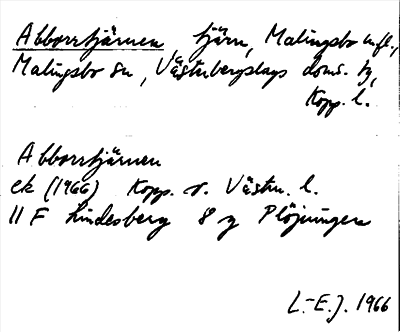 Abborrtjärnen tjärn, Malingsbo m.fl.,
Malingsbo sn, Västerbergslags doms. tg,
Kopp. l.
Abborrtjärnen
ek (1966) Kopp. o. Västm. l.
11 F Lindesberg 8 g Plöjningen
L.-E. J. 1966